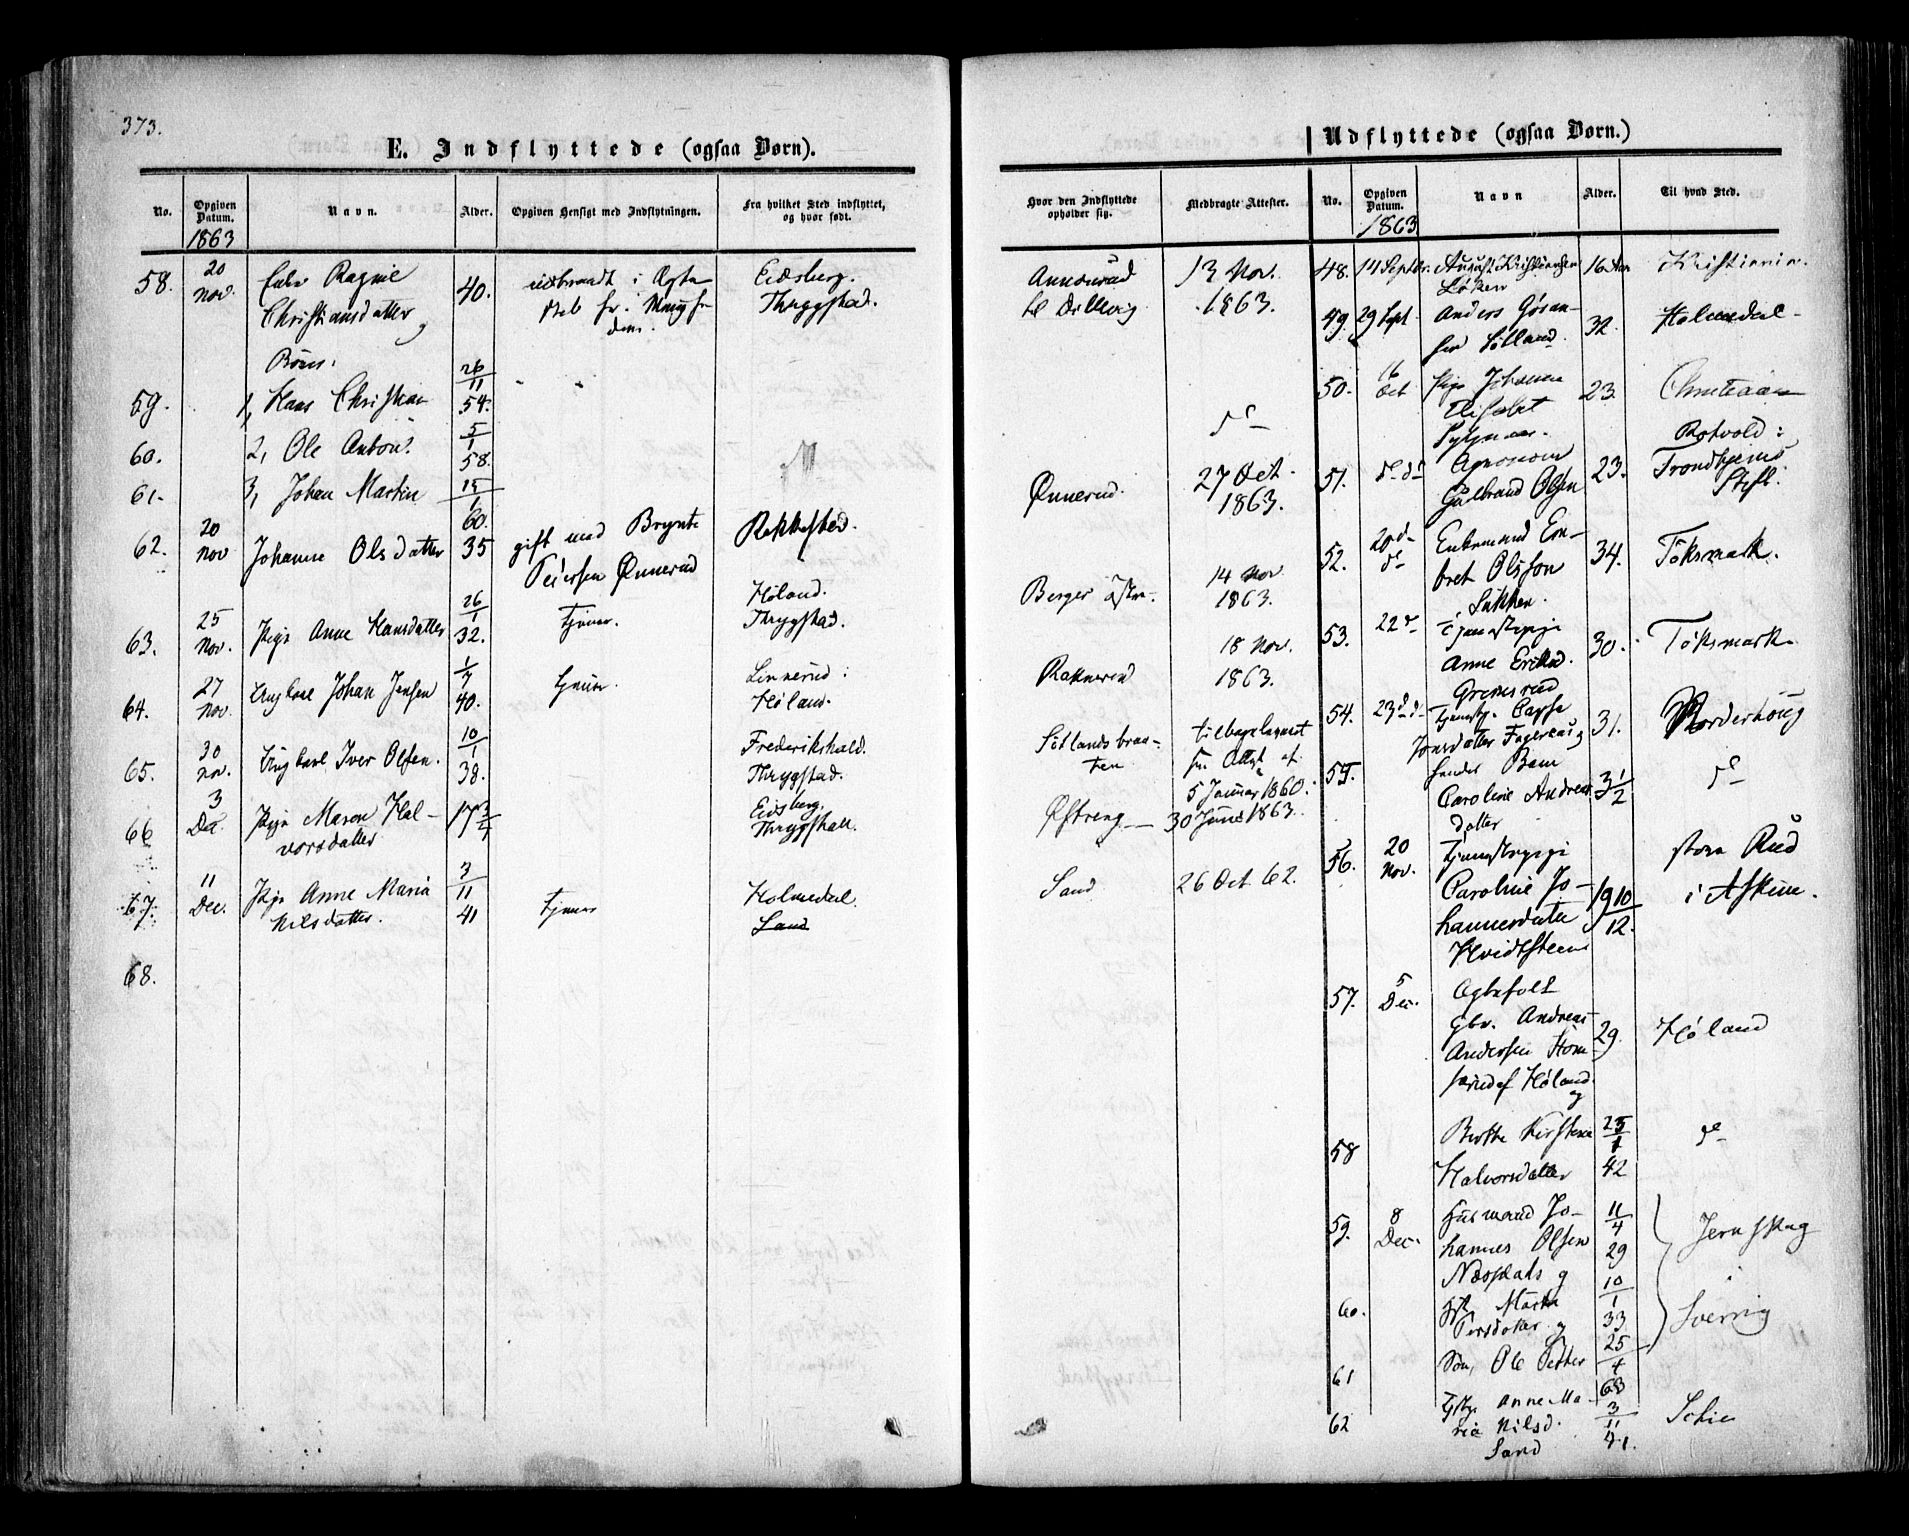 373.
E. Indflyttede (ogsaa Børn).
No.
Opgiven Datum.
Navn.
Alder.
Opgiven Hensigt med Indflytningen.
Fra hvilket Sted indflyttet, og hvor født.
1863
58.
20 Nov.
Enke Ragnil
Christiansdatter
og
40.
Eidsberg.
Thrygstad.
Børn:
59.
1, Hans Christian
26/11 54.
60.
2, Ole Anton.
5/1 58.
61.
3, Johan Martin
15/1 60.
62.
20 Nov
Johanne Olsdatter
35
gift med Brynte
Peiersen Ønnerud
Rakkestad.
63.
25 Nov.
Pige Anne Hansdatter
26/1 32.
tjener.
Høland.
Thrygstad.
64.
27 Nov.
Ungkarl Johan Jensen
1/7 40.
tjener.
Linnerud:
Høland.
65.
30 Nov.
Ungkarl Iver Olsen.
10/1 38.
Frederikshald.
Thrygstad.
66
3 Dec.
Pige Maren Hal-
vorsdatter
17 3/4
Eidsberg.
Thrygstad.
67
11 Dec.
Pige Anne Maria
Nilsdatter.
3/11 41
tjener
Holmedal
Sand
68.
Udflyttede (ogsaa Børn.)
Hvor den Indflyttede opholder sig.
Medbragte Attester.
No.
Opgiven Datum.
Navn
Alder.
Til hvad Sted.
1863
13 Nov.
1863.
Ønnerud.
27 Oct.
1863.
Berger østre.
14 Nov
1863.
Rakkerud
18 Nov.
1863.
Sotlandsbraa-
ten
tilbageleveret
5 Januar 1860.
Østreng
30 Juni 1863.
Sand
26 Oct 62.
48.
14 Septbr.
August Kristiansen
Løken
16 Aar
Kristiania.
49.
29 Sept.
Anders Gøran-
sen Sotland.
32.
Holmedal.
50.
16 Oct
Pige Johanna
Elisabet
23.
51.
do do
Agronom
Gulbrand Olsen
23.
Rotvold:
Trondhjems
Stift.
52.
20 do
Enkemand En-
bret Olsson
34.
Töksmark.
53.
22 do
Tjenestepige
Anne Eriksd.
30.
Töksmark
54.
23 do
Grinsrud
31.
Norderhoug
55.
Caroline Andreas-
datter
3 1/2
do
56.
20 Nov.
Tjenestepige
Caroline Jo-
hannesdatter
Hvidtsteen
19 10/12.
store Rud
i Askim.
57.
5 Dec.
Ægtefolk
Gbr. Andreas
Andersen
af Høland
og
29.
Høland
58
Berthe Kirstine
Halvorsdatter
25/1 42
do
59.
8 Dec.
Husmand Jo-
hannes Olsen
Næsplads og
11/4 29
Jernskog
60.
Marte
Persdatter og
10/1 33
i
Sverrig
61
Søn, Ole Petter
25/4 63
62
Anne Ma-
ria Nilsd.
Sand
3/11 41.